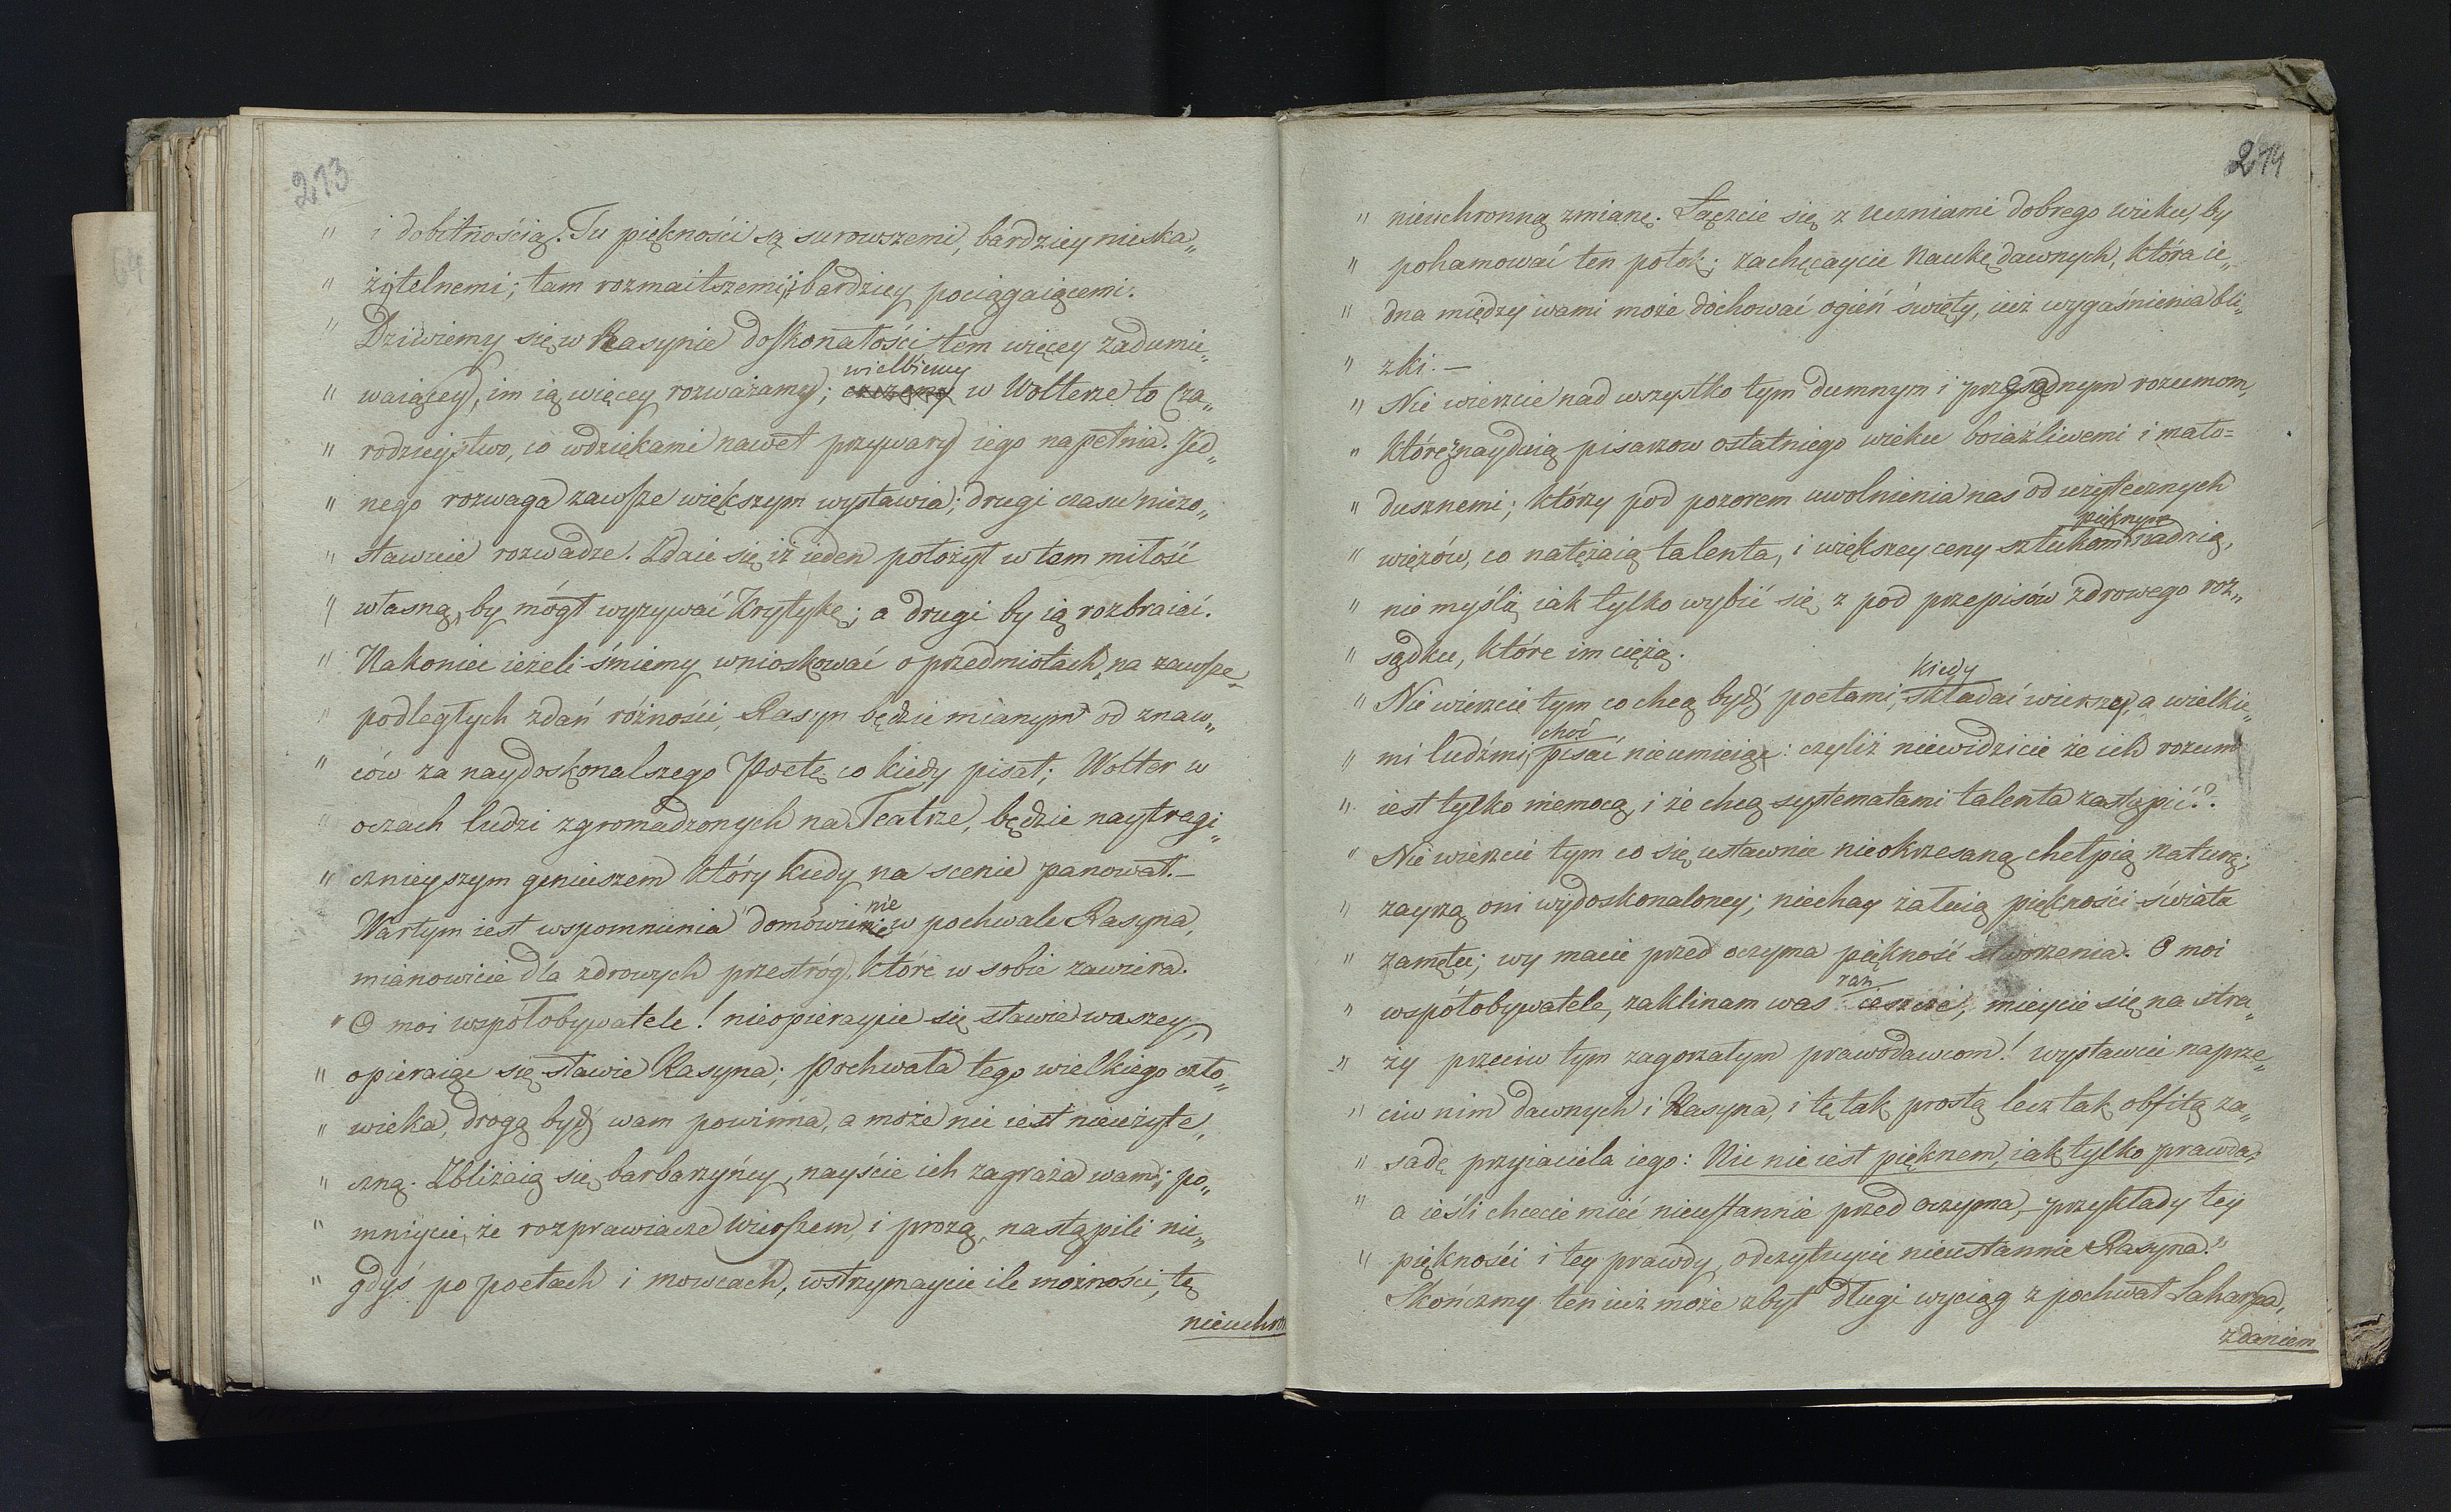 213
" i dobitnością. Tu piękności są surowszemi, bardziey nieska„
" zitelnemi; tam rozmaitszemi, i bardziey pociągaiącemi.
" Dziwiemy się w Rasynie doskonałości tem więcey zadumie„
wielbiemy
" waiącey, im ią więcey rozważamy; czczemy w Wolterze to cza„
" rodzieystwo, co wdziękami nawet przywary iego napełnia. Jed„
" nego rozwaga zawsze większym wystawia; drugi czasu niezo„
" stawuie rozwadze. Zdaie się iż ieden położył w tem miłość
" własną, by mógł wyzywać Krytykę; a drugi by ią rozbraiać.
" Nakoniec ieżeli śmiemy wnioskować o przedmiotach, na zawsze
" podległych zdań różności, Rasyn będzie mianym od znaw„
" ców za naydoskonalszego Poetę co kiedy pisał; Wolter w
" oczach ludzi zgromadzonych na Teatrze, będzie naytragi„
" cznieyszym geniuszem który kiedy na scenie panował.–
nie
Wartym iest wspomnienia domówienie w pochwale Rasyna,
mianowicie dla zdrowych przestróg, które w sobie zawiera.
" O moi współobywatele! nieopieraycie się sławie waszey,
" opieraiąc się sławie Rasyna; pochwała tego wielkiego czło„
" wieka, drogą bydź wam powinna, a może nie iest nieużyte„
" czną. Zbliżaią się barbarzyńcy, nayście ich zagraża wam; po„
" mniycie, że rozprawiacze wierszem, i prozą, nastąpili nie„
" gdyś po poetach i mowcach, wstrzymaycie ile możności, tę
nieuchron
214
" nieuchronną zmianę. Łączcie się z uczniami dobrego wieku, by
" pohamować ten potok; zachęcaycie Naukę dawnych, która ie„
" dna między wami może dochować ogień święty, iuż wygaśnienia bli„
" zki.–
" Nie wierzcie nad wszystko tym dumnym i przesądnym rozumom,
" które znayduią pisarzow ostatniego wieku boiaźliwemi i mało=
" dusznemi; którzy pod pozorem uwolnienia nas od użytecznych
pięknym
" więzów, co natężaią talenta, i większey ceny sztukom nadaią,
" nie myślą iak tylko wybić się z pod przepisów zdrowego roz„
" sądku, które im ciężą.
kiedy
" Nie wierzcie tym co chcą bydź poetami, składać wierszy, a wielkie„
choć
" mi ludźmi, pisać nieumieiąc: czyliż niewidzicie że ich rozum
" iest tylko niemocą, i że chcą systematami talenta zastąpić??
" Nie wierzcie tym co się ustawnie nieokrzesaną chełpią naturą;
" zayrzą oni wydoskonaloney; niechay żałuią piękności świata
" zamętu; wy macie przed oczyma piękność stworzenia. O moi
raz
" współobywatele, zaklinam was ieszcze, mieycie się na stra„
" ży przeciw tym zagorzałym prawodawcom! wystawcie naprze„
" ciw nim dawnych i Rasyna, i tę tak prostą lecz tak obfitą za„
" sadę przyiaciela iego: Nic nie iest pięknem, iak tylko prawda:
" a ieśli chcecie mieć nieustannie przed oczyma, przykłady tey
" piękności i tey prawdy, odczytuycie nieustannie Rasyna."
Skończmy ten iuż może zbyt długi wyciąg z pochwał Laharpa,
zdaniem